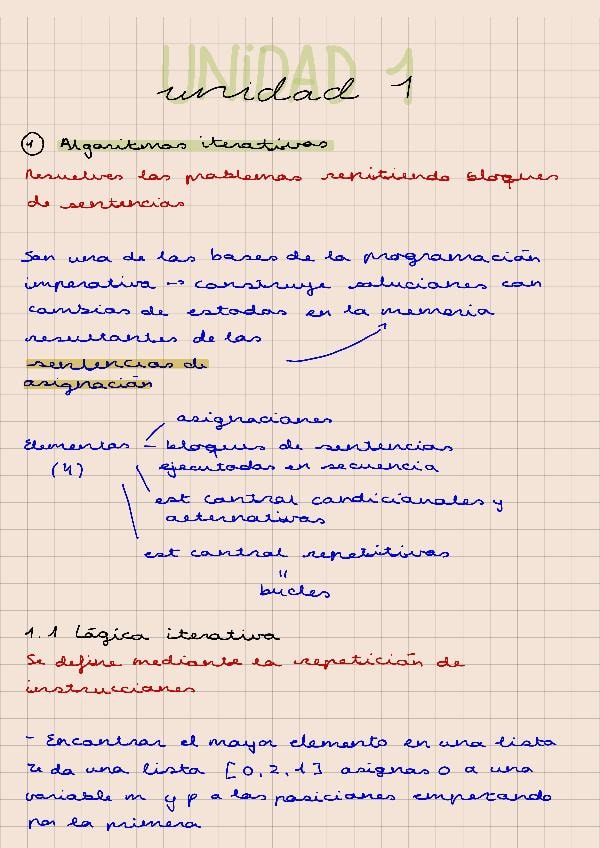 UNIDAD 1
unidad 1
1 Algoritmos iterativos
Resuelves los problemas repitiendo bloques
de sentencias
Son una de las bases de la programación
imperativa -> construye soluciones con
cambios de estados en la memoria
resultantes de las
sentencias de
asignación
asignaciones
Elementos - bloques de sentencias
(4) ejecutadas en secuencia
est control condicionales y
alternativas
est control repetitivas
"
bucles
1.1 Lógica iterativa
Se define mediante la repetición de
instrucciones
- Encontrar el mayor elemento en una lista
Te da una lista [0,2,1] asignas 0 a una
variable m y p a las posiciones empezando
por la primera